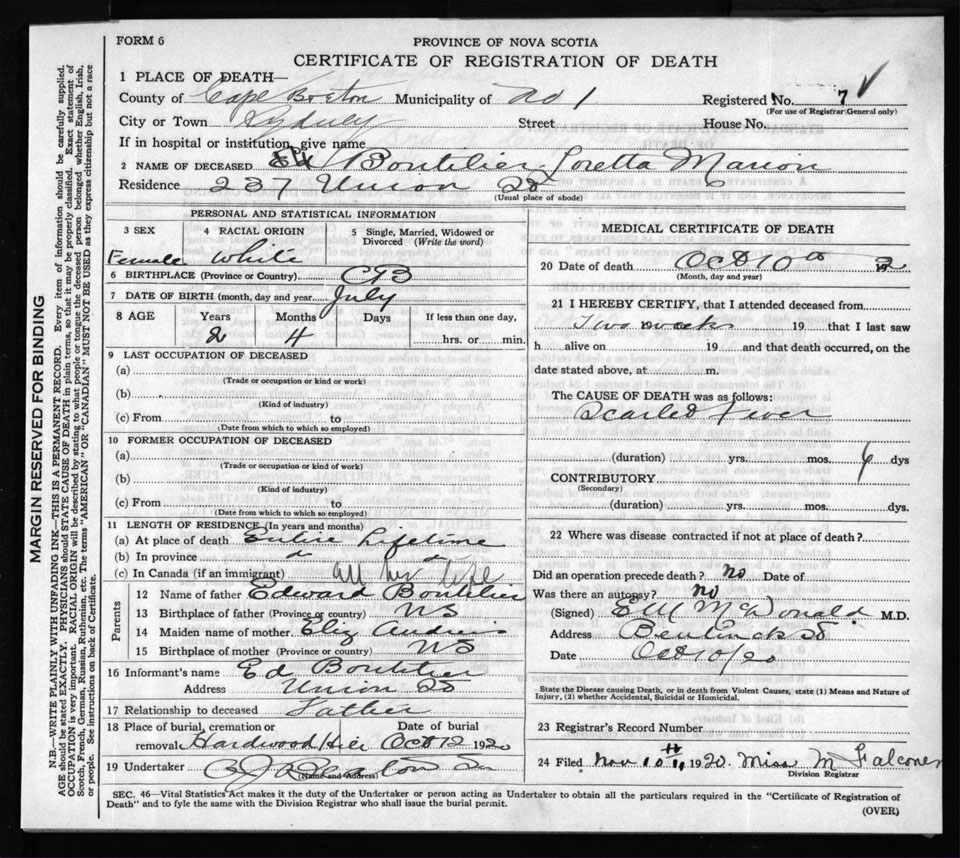 FORM 6
PROVINCE OF NOVA SCOTIA
CERTIFICATE OF REGISTRATION OF DEATH
1 PLACE OF DEATH—
County of Cape Breton Municipality of No 1 Registered No. 7
(For use of Registrar General only)
City or Town Sydney Street House No.
If in hospital or institution, give name
2 NAME OF DECEASED Boutilier, Loretta Marion
Residence 237 Union St
(Usual place of abode)
PERSONAL AND STATISTICAL INFORMATION
3 SEX 4 RACIAL ORIGIN 5 Single, Married, Widowed or Divorced (Write the word)
Female White
6 BIRTHPLACE (Province or Country) CB
7 DATE OF BIRTH (month, day and year) July
8 AGE Years Months Days If less than one day,
2 4 hrs. or min.
9 LAST OCCUPATION OF DECEASED
(a)
(Trade or occupation or kind or work)
(b)
(Kind of industry)
(c) From to
(Date from which to which so employed)
10 FORMER OCCUPATION OF DECEASED
(a)
(Trade or occupation or kind of work)
(b)
(Kind of industry)
(c) From to
(Date from which to which so employed)
11 LENGTH OF RESIDENCE (In years and months)
(a) At place of death Entire Lifetime
(b) In province do
(c) In Canada (if an immigrant) all her life
Parents
12 Name of father Edward Boutilier
13 Birthplace of father (Province or country) NS
14 Maiden name of mother Eliz
15 Birthplace of mother (Province or country) NS
16 Informant's name Ed Boutilier
Address Union St
17 Relationship to deceased Father
18 Place of burial, cremation or removal Hardwood Hill Date of burial Oct 12 1920
19 Undertaker
(Name and Address)
MEDICAL CERTIFICATE OF DEATH
20 Date of death Oct 10th
(Month, day and year)
21 I HEREBY CERTIFY, that I attended deceased from
Two weeks 19 that I last saw
h alive on 19 and that death occurred, on the
date stated above, at m.
The CAUSE OF DEATH was as follows:
Scarlet Fever
(duration) yrs. mos. 6 dys
CONTRIBUTORY
(Secondary)
(duration) yrs. mos. dys.
22 Where was disease contracted if not at place of death?
Did an operation precede death? no Date of
Was there an autopsy? no
(Signed) E M McDonald M.D.
Address Bentinck St
Date Oct 10/20
State the Disease causing Death, or in death from Violent Causes, state (1) Means and Nature of
Injury, (2) whether Accidental, Suicidal or Homicidal.
23 Registrar's Record Number
24 Filed Nov 10th 1920. Miss M Falconer
Division Registrar
SEC. 46—Vital Statistics Act makes it the duty of the Undertaker or person acting as Undertaker to obtain all the particulars required in the "Certificate of Registration of
Death" and to fyle the same with the Division Registrar who shall issue the burial permit.
(OVER)
MARGIN RESERVED FOR BINDING
N.B.—WRITE PLAINLY WITH UNFADING INK—THIS IS A PERMANENT RECORD. Every item of information should be carefully supplied.
AGE should be stated EXACTLY. PHYSICIANS should STATE CAUSE OF DEATH in plain terms, so that it may be properly classified. Exact statement of
OCCUPATION is very important. RACIAL ORIGIN will be described by stating to what people or tongue the deceased person belonged whether English, Irish,
Scotch, French, German, Russian, Ruthenian, etc. The terms "AMERICAN" OR "CANADIAN" MUST NOT BE USED as they express citizenship but not a race
or people. See instructions on back of Certificate.